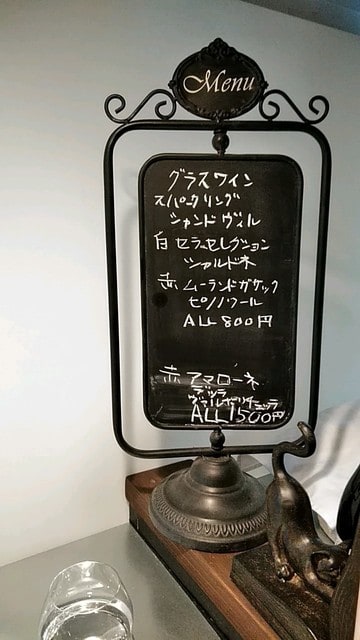 Menu
グラスワイン
スパークリング
シャンドヴィル
白 セラーセレクション
シャルドネ
赤 ムーランドガサック
ピノノワール
ALL 800円
赤 アマローネ
デッラ
ヴァルポリチェッラ
ALL 1500円